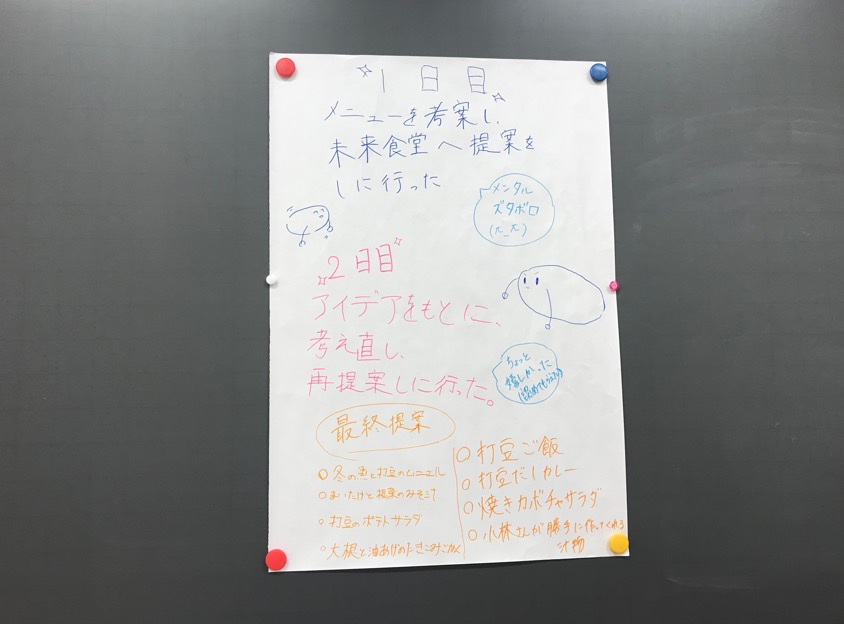 1日目
メニューを考案し、
未来食堂へ提案を
しに行った
メンタル
ズタボロ
2日目
アイデアをもとに、
考え直し、
再提案しに行った。
ちょっと
嬉しかった
最終提案
○冬の魚と打豆のムニエル
○打豆のポテトサラダ
○大根と油あげのたきこみごはん
○打豆ご飯
○打豆だしカレー
○焼きカボチャサラダ
○小林さんが勝手に作ってくれる
汁物